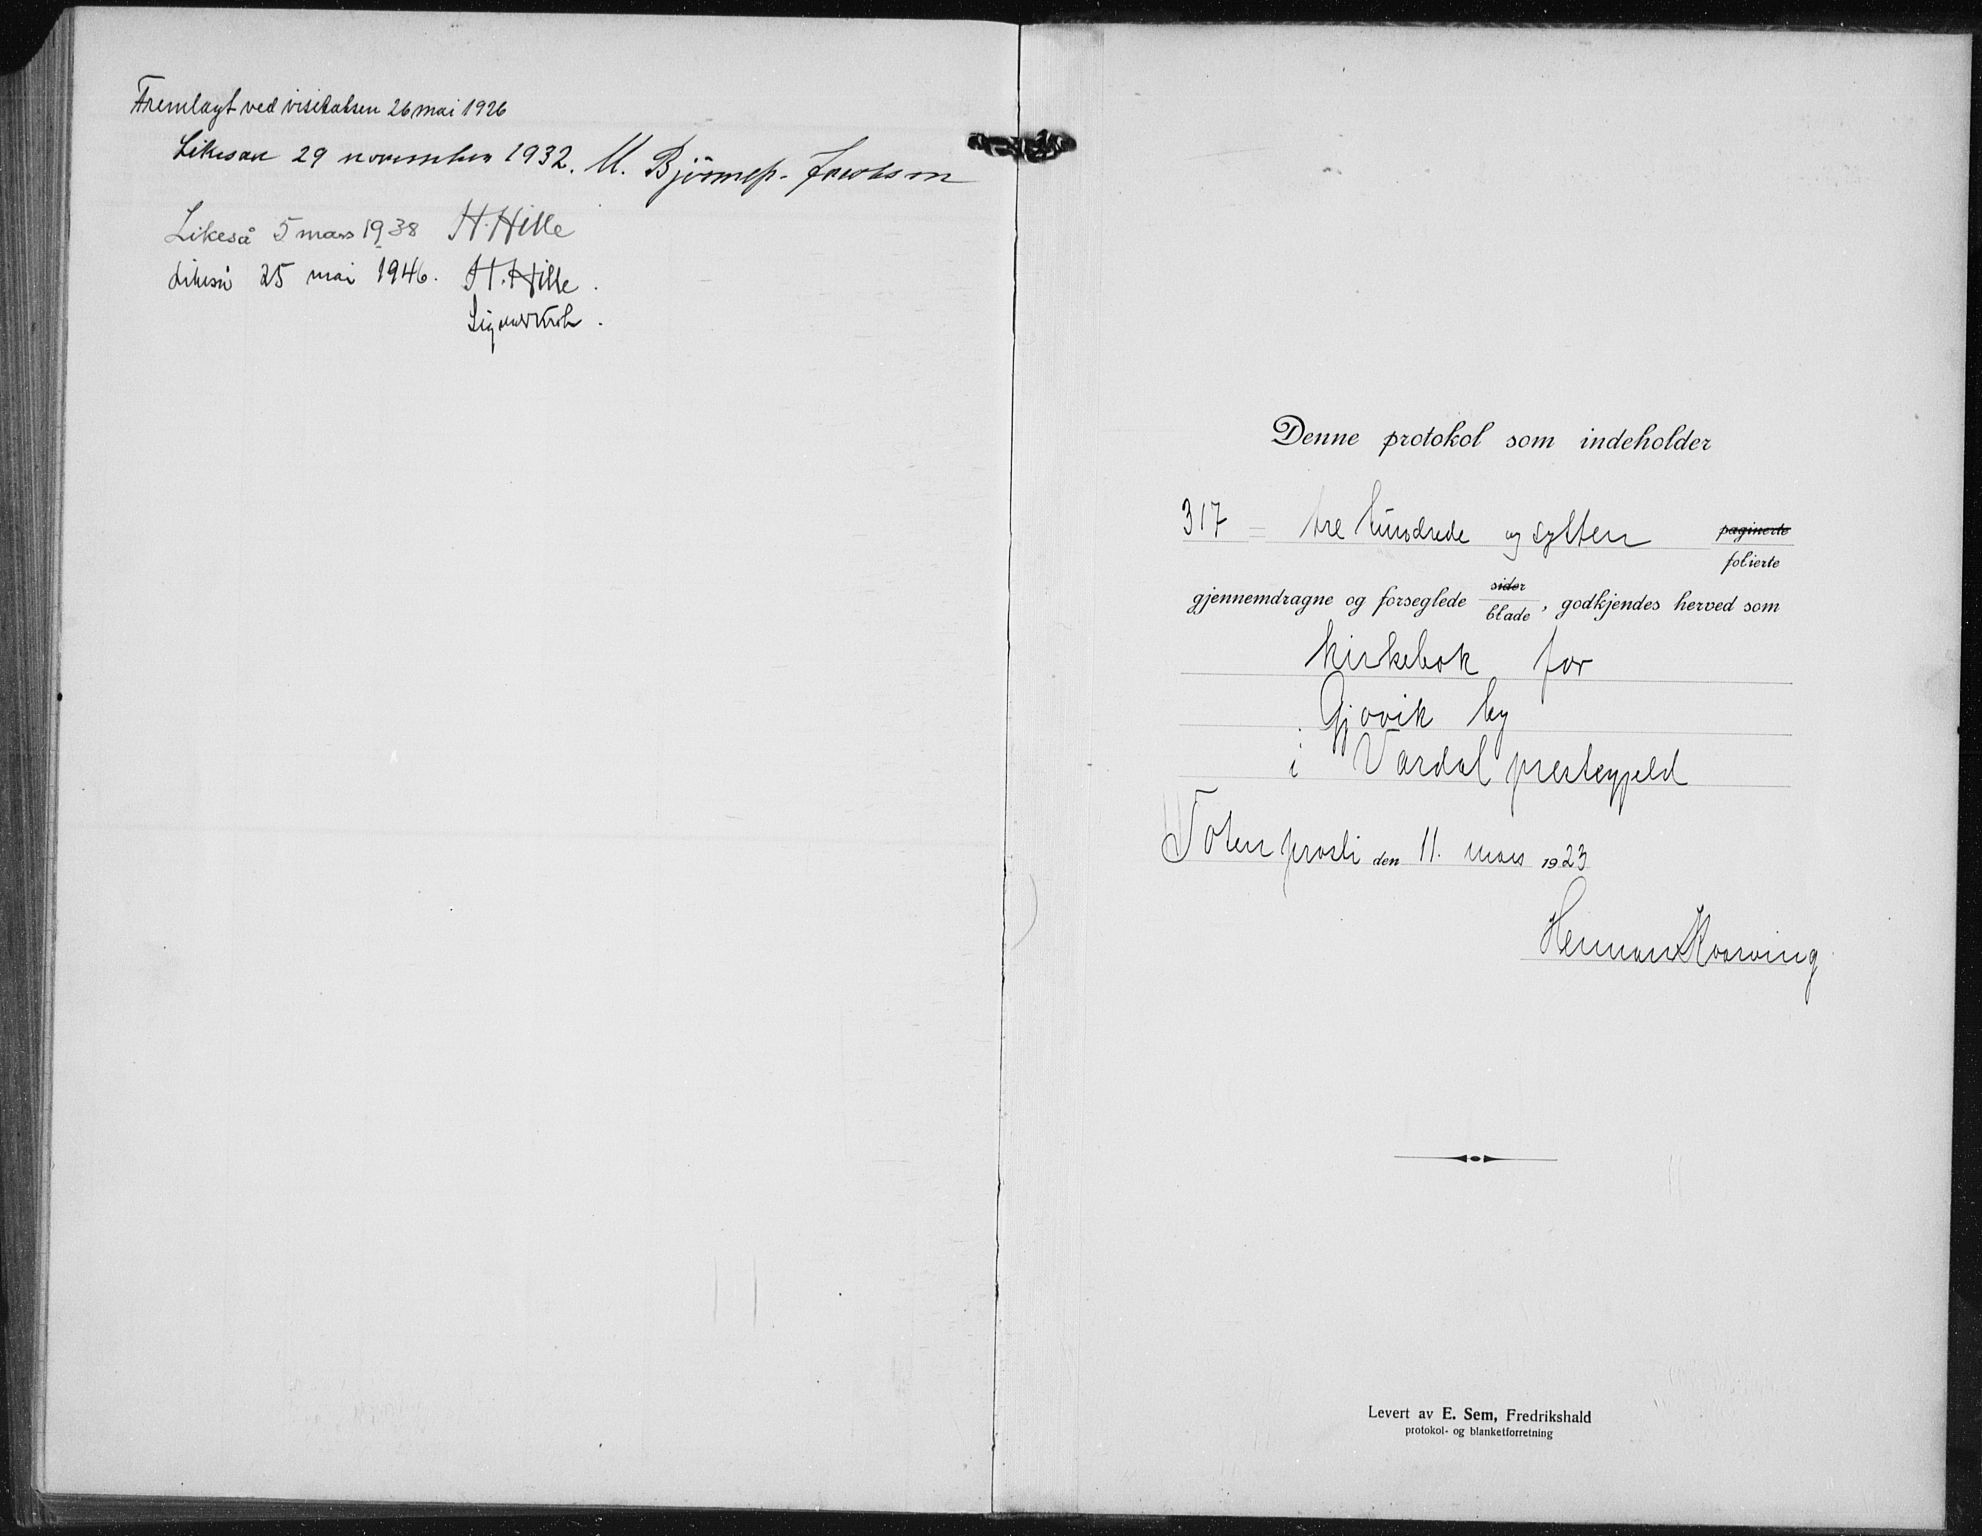 Fremlagt ved visitatsen 26 mai 1926
Likesaa 29 november 1932. M. Bjønness-Jacobsen
Likeså 5 mars 1938 H. Hille
Likeså 25 mai 1946. H. Hille.
Denne protokol som indeholder
317 = tre hundrede og sytten paginerte
folierte
gjennemdragne og forseglede sider
blade, godkjendes herved som
kirkebok for
Gjøvik by
i Vardal prestegjeld
Toten prosti den 11. mars 1923
Herman Kvarving
Levert av E. Sem, Fredrikshald
protokol- og blanketforretning